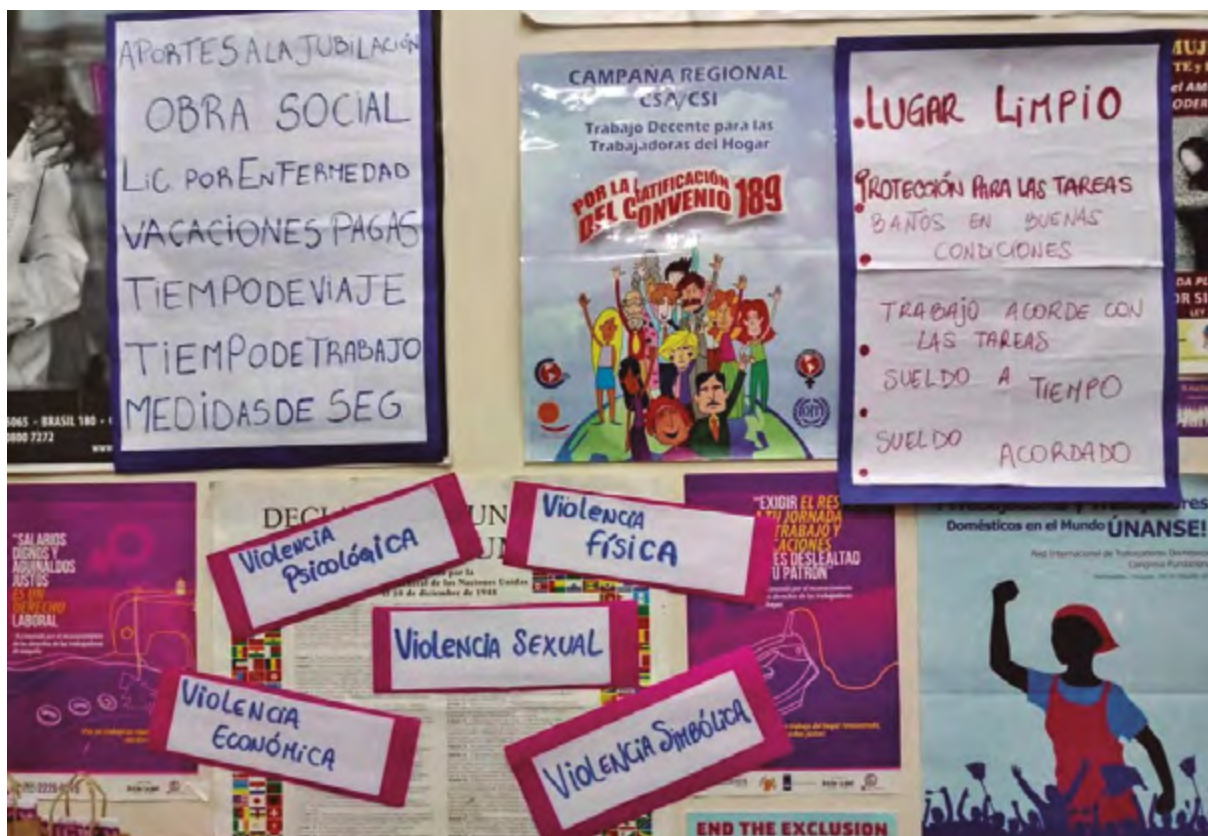 APORTES A LA JUBILACIÓN
OBRA SOCIAL
LIC POR ENFERMEDAD
VACACIONES PAGAS
TIEMPO DE VIAJE
TIEMPO DE TRABAJO
MEDIDAS DE SEG
5065 - BRASIL 180 -
0800 7272
www
CAMPAÑA REGIONAL
CSA/CSI
Trabajo Decente para las
Trabajadoras del Hogar
POR LA RATIFICACIÓN
DEL CONVENIO 189
LUGAR LIMPIO
PROTECCIÓN PARA LAS TAREAS
BAÑOS EN BUENAS
CONDICIONES
TRABAJO ACORDE CON
LAS TAREAS
SUELDO A TIEMPO
SUELDO ACORDADO
MUJ
TE y
el AM
ODER
DA PU
OR SI
LEY
"SALARIOS
DIGNOS Y
AGUINALDOS
JUSTOS
ES UN
DERECHO
LABORAL
DECL
UN
UN
por la
eral de las Naciones Unidas
el 10 de diciembre de 1948
Violencia
Psicológica
Violencia
Física
Violencia Sexual
Violencia
Económica
Violencia Simbólica
"EXIGIR EL RES
A TU JORNADA
TRABAJO Y
CACIONES
ES DESLEALTAD
TU PATRÓN"
Domésticos en el Mundo ÚNANSE!
Red Internacional de
END THE EXCLUSION